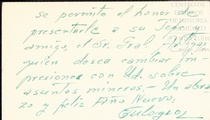 se permite el honor de
presentarle a su Jefe y
amigo, el Sr. Gral.
quien desea cambiar im-
presiones con Ud. sobre
asuntos mineros.- Un abra-
zo y feliz Año Nuevo.